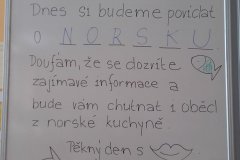 Dnes si budeme povídat
o NORSKU.
Doufám, že se dozvíte
zajímavé informace a
bude vám chutnat i oběd
z norské kuchyně.
Pěkný den s